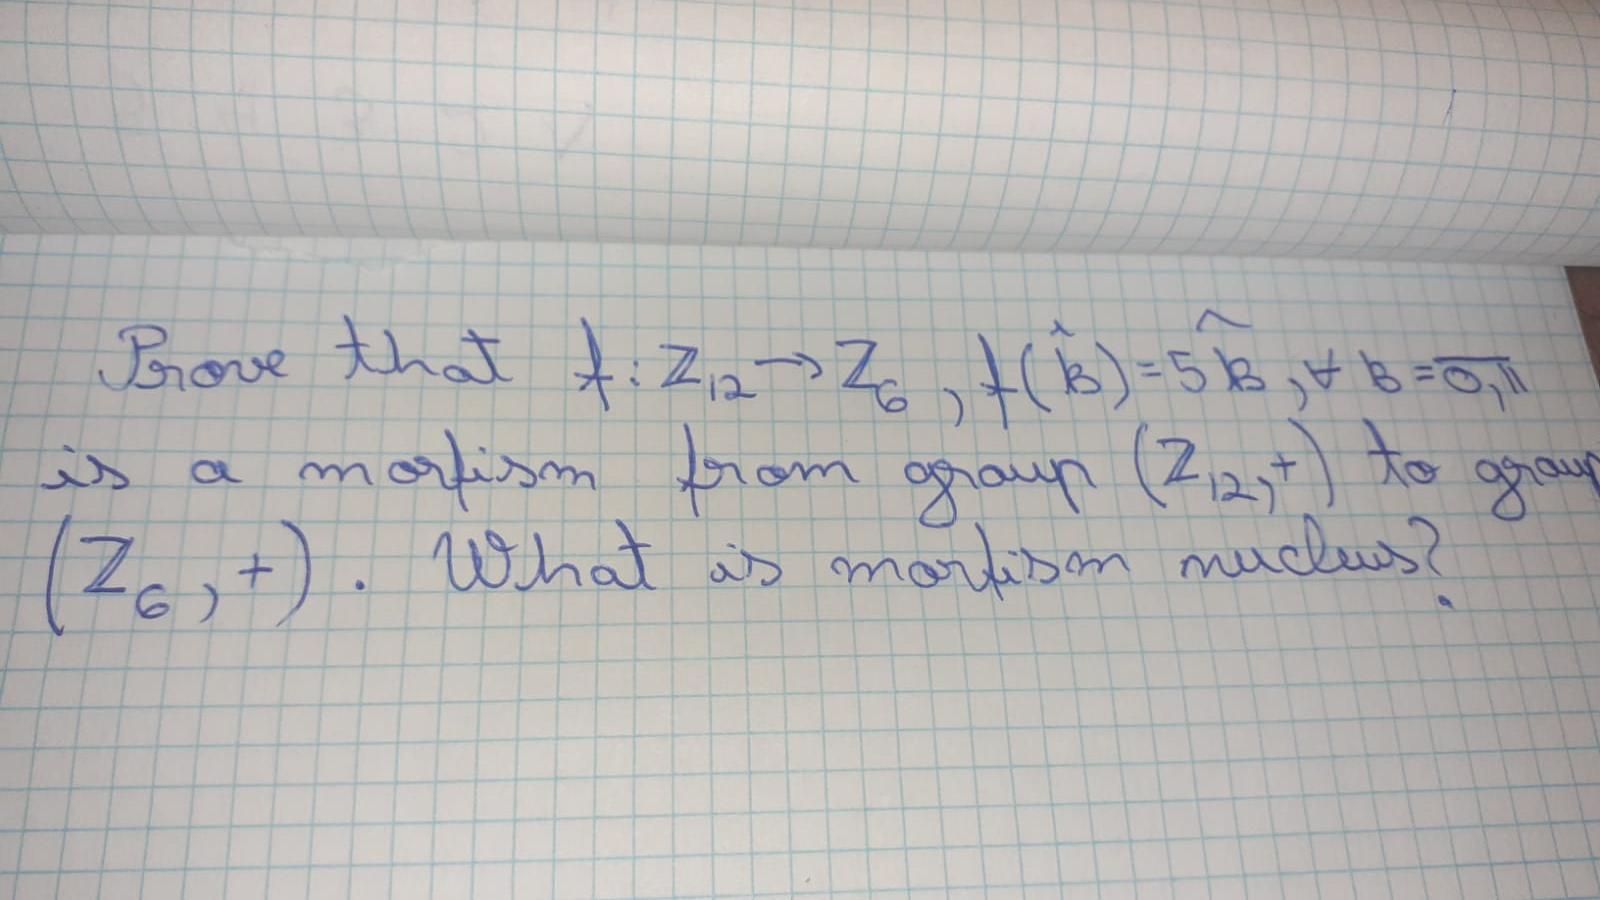 Prove that f: Z₁₂ → Z₆, f(k̂) = \widehat{5k}, ∀ k = \overline{0,11}
is a morfism from group (Z₁₂, +) to group
(Z₆, +). What is morfism nucleus?